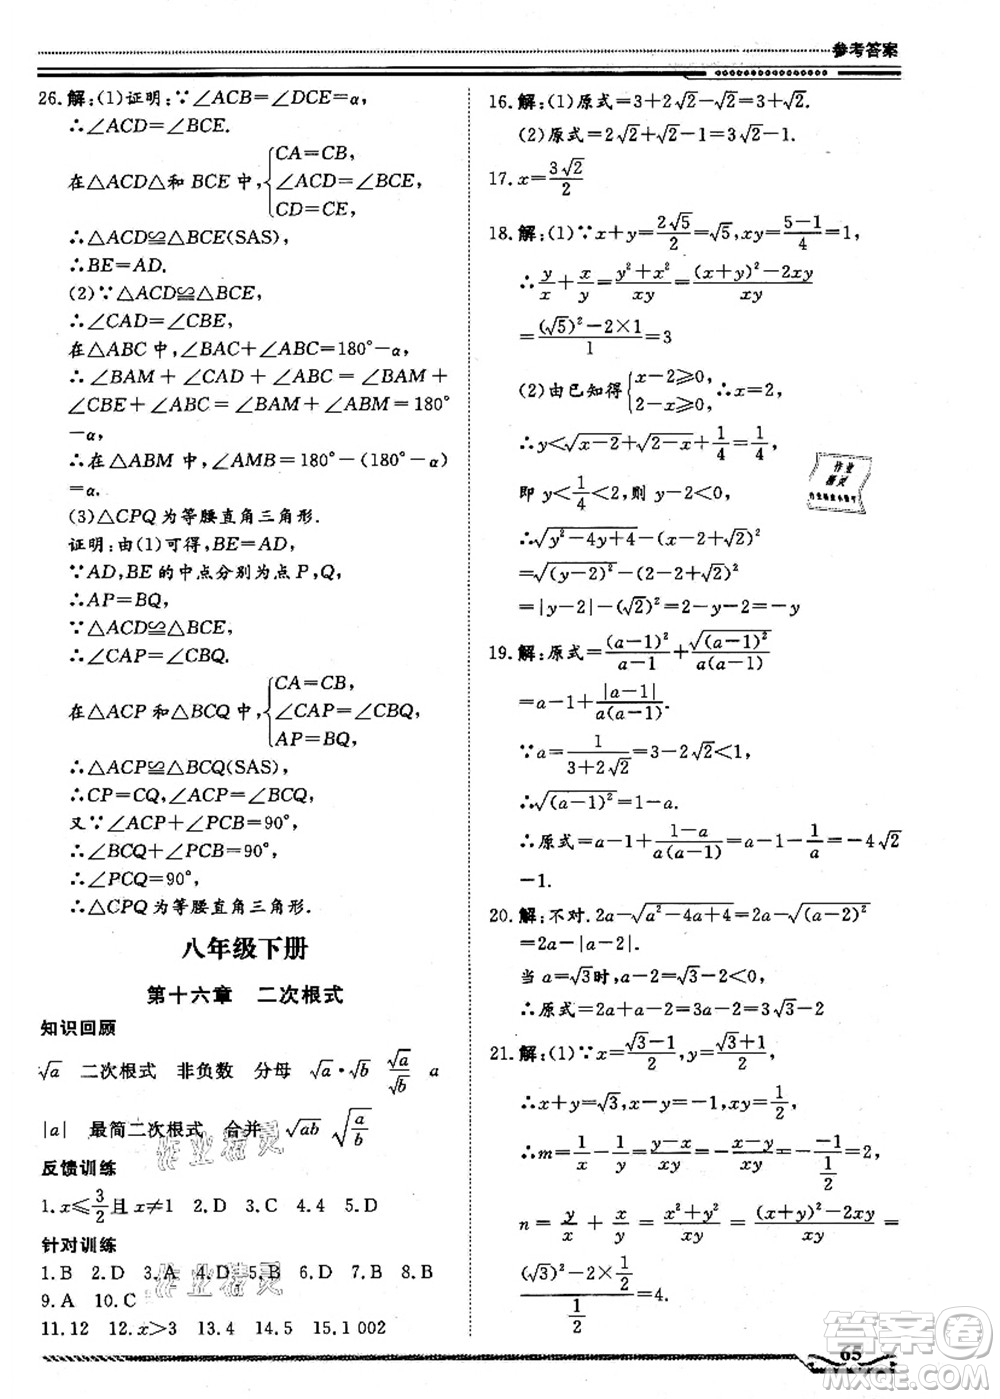 参考答案
26.解:(1)证明:∵∠ACB=∠DCE=α,
∴∠ACD=∠BCE.
在△ACD△和 BCE 中,{CA=CB, ∠ACD=∠BCE, CD=CE,
∴△ACD≌△BCE(SAS)
∴BE=AD.
(2)∵△ACD≌△BCE,
∴∠CAD=∠CBE,
在△ABC 中,∠BAC+∠ABC=180°-α,
∴∠BAM+∠CAD+∠ABC=∠BAM+
∠CBE+∠ABC=∠BAM+∠ABM=180°
-α,
∴在△ABM 中,∠AMB=180°-(180°-α)
=α.
(3)△CPQ 为等腰直角三角形.
证明:由(1)可得,BE=AD,
∵AD,BE 的中点分别为点 P,Q,
∴AP=BQ,
∵△ACD≌△BCE,
∴∠CAP=∠CBQ.
在△ACP 和△BCQ 中,{CA=CB, ∠CAP=∠CBQ, AP=BQ
∴△ACP≌△BCQ(SAS)
∴CP=CQ,∠ACP=∠BCQ,
又∵∠ACP+∠PCB=90°,
∴∠BCQ+∠PCB=90°,
∴∠PCQ=90°,
∴△CPQ 为等腰直角三角形.
八年级下册
第十六章 二次根式
知识回顾
√a 二次根式 非负数 分母 √a·√b √a/√b a
|a| 最简二次根式 合并 √ab √(a/b)
反馈训练
1.x≤3/2且 x≠1 2.D 3.C 4.D 5.D
针对训练
1.B 2.D 3.A 4.D 5.B 6.B 7.D 8.B
9.A 10.C
11.12 12.x>3 13.4 14.5 15.1 002
16.解:(1)原式=3+2√2-√2=3+√2.
(2)原式=2√2+√2-1=3√2-1.
17.x=3√2/2
18.解:(1)∵x+y=2√5/2=√5,xy=(5-1)/4=1,
∴y/x+x/y=(y²+x²)/xy=((x+y)²-2xy)/xy
=((√5)²-2×1)/1=3
(2)由已知得{x-2≥0, 2-x≥0,∴x=2,
∴y<√(x-2)+√(2-x)+1/4=1/4,
即 y<1/4<2,则 y-2<0,
∴√(y²-4y+4)-(√2)²
=√((y-2)²)-(√2)²
=|y-2|-(√2)²=2-y-2=-y
19.解:原式=(a-1)²/(a-1)+√((a-1)²)/(a(a-1))
=a-1+|a-1|/(a(a-1)).
∵a=1/(3+2√2)=3-2√2<1,
∴√((a-1)²)=1-a.
∴原式=a-1+(1-a)/(a(a-1))=a-1-1/a=-4√2
-1.
20.解:不对.2a-√(a²-4a+4)=2a-√((a-2)²)
=2a-|a-2|.
当 a=√3时,a-2=√3-2<0.
∴原式=2a+a-2=3a-2=3√3-2
21.解:(1)∵x=(√3-1)/2,y=(√3+1)/2,
∴x+y=√3,y-x=1,xy=1/2
∴m=1/x-1/y=(y-x)/xy=1/(1/2)=2,
n=y/x+x/y=(x²+y²)/xy=((x+y)²-2xy)/xy=
((√3)²-2×1/2)/(1/2)=4.
作业精灵
作业精灵
作业
精灵
答案圈
MXQE.COM
65